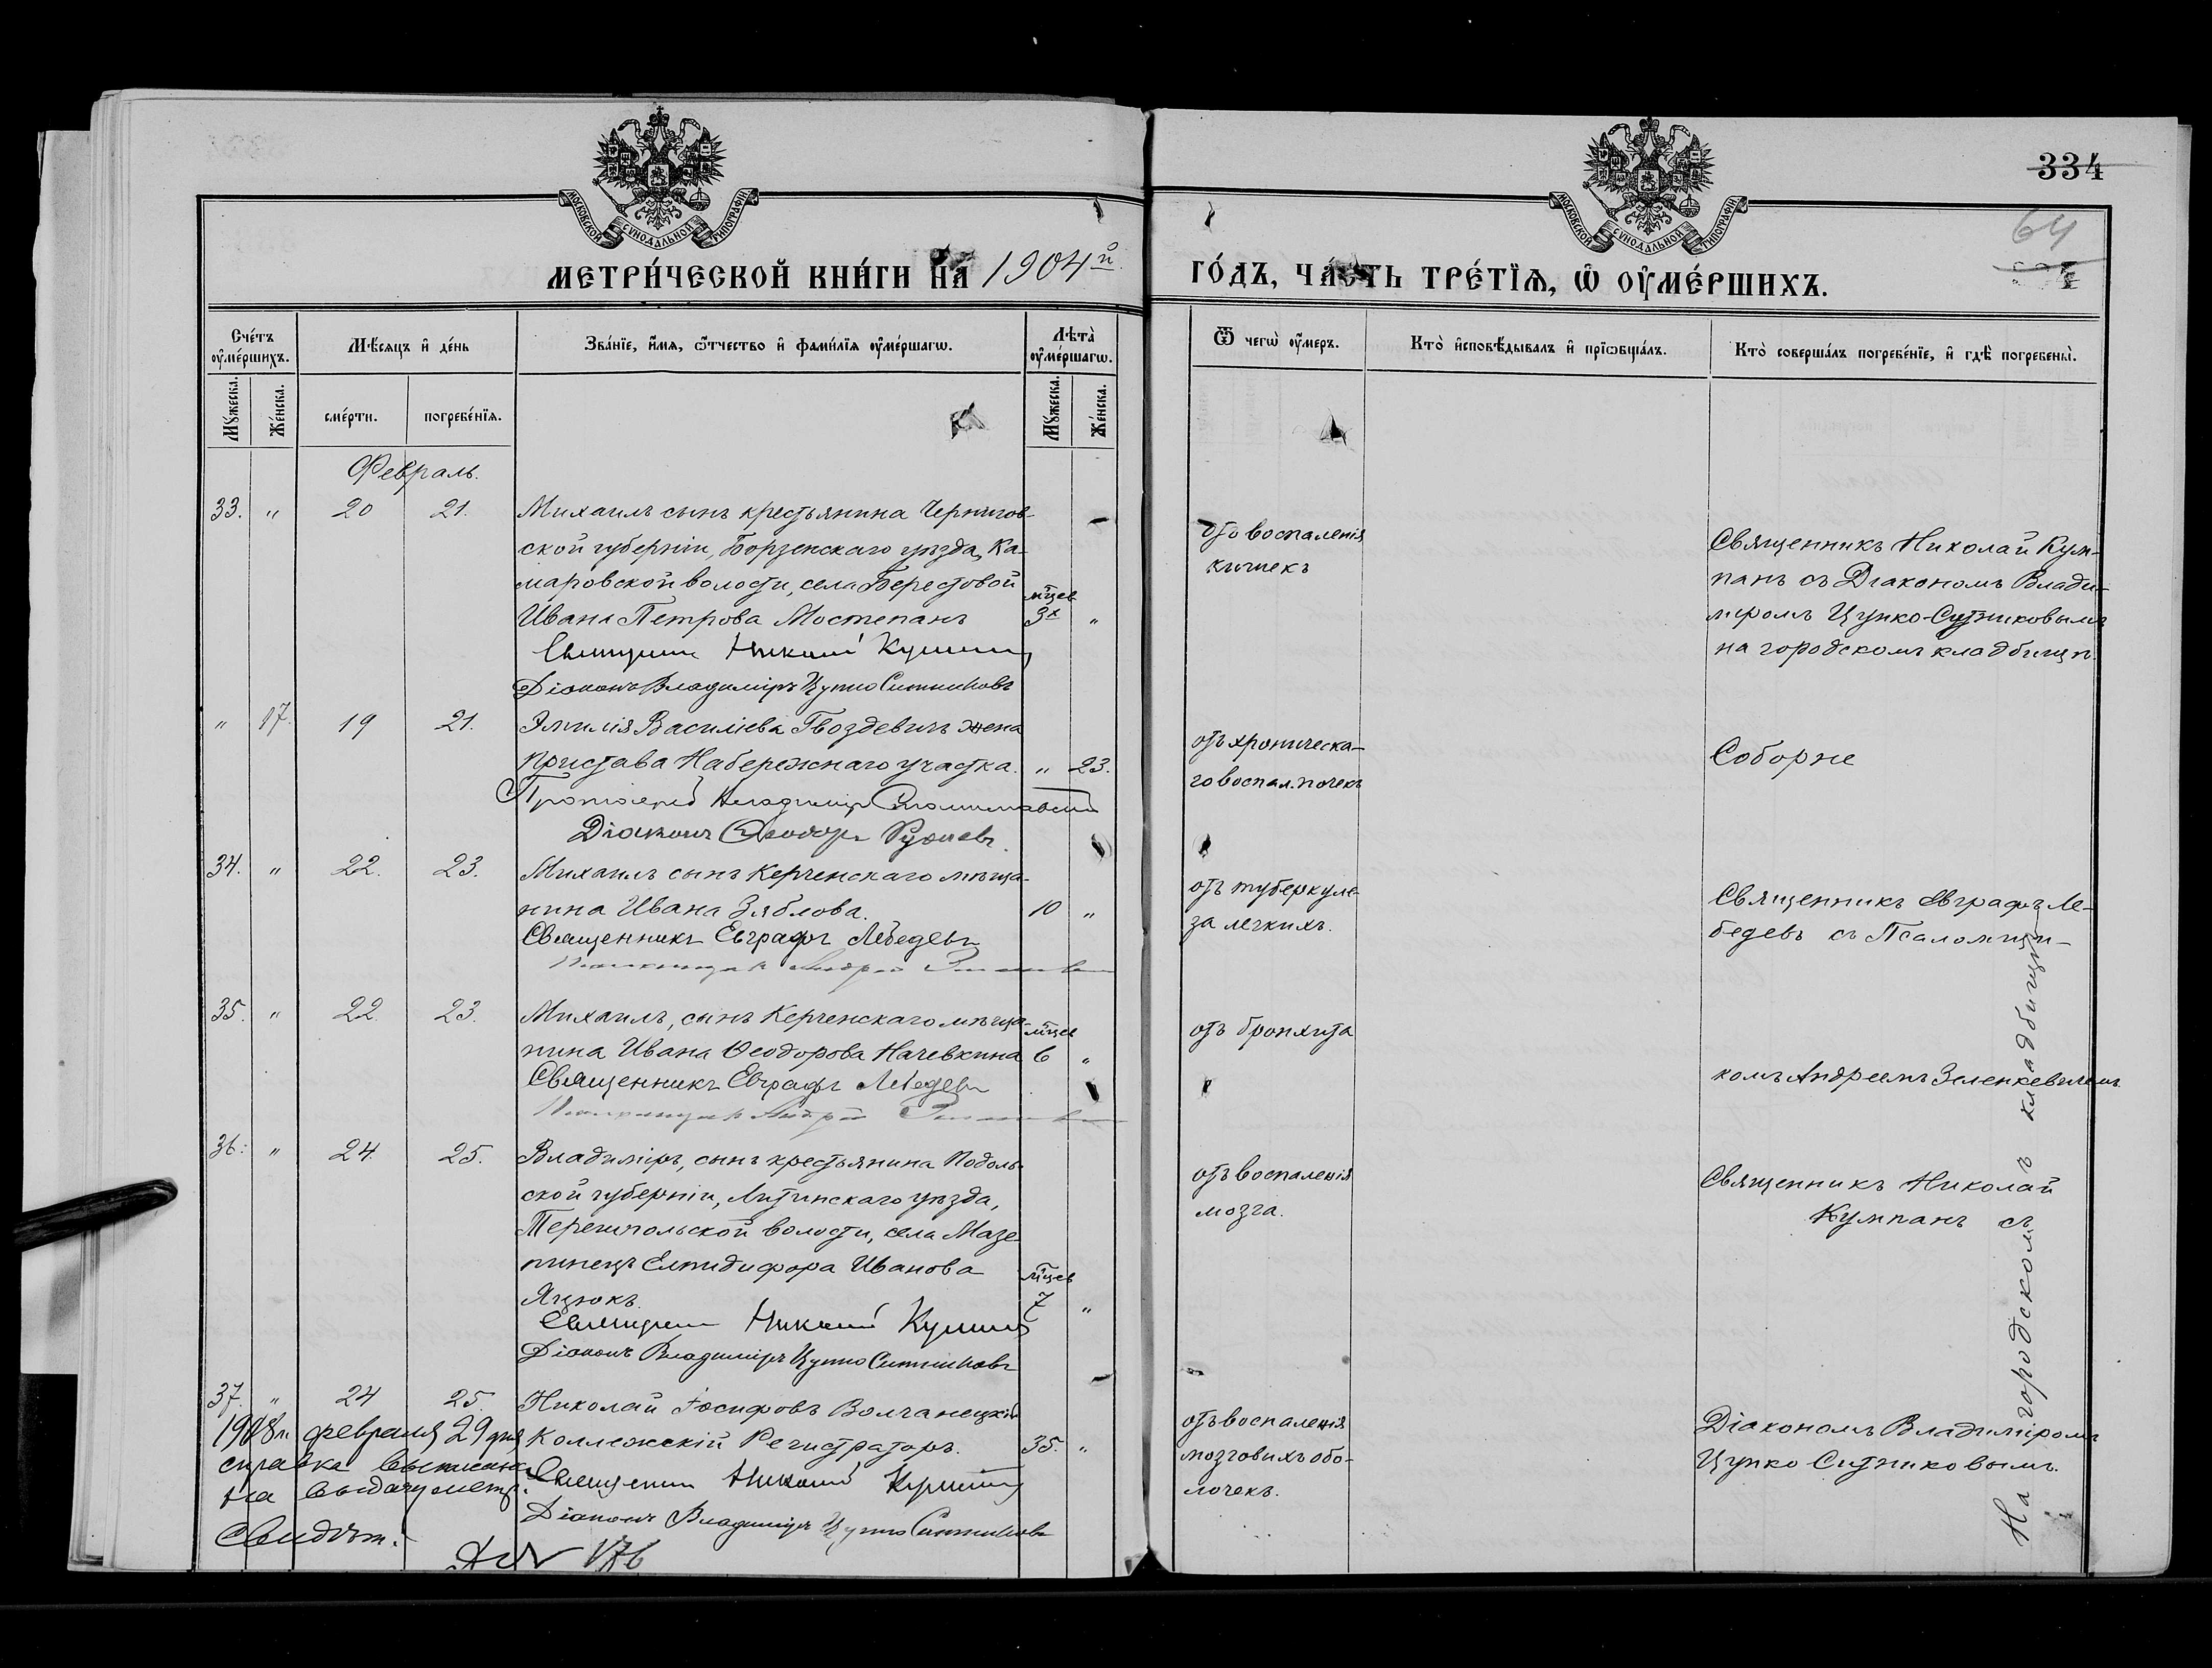 МОСКОВСКОЙ СУНОДАЛЬНОЙ ТИПОГРАФІИ
МОСКОВСКОЙ СУНОДАЛЬНОЙ ТИПОГРАФІИ
334
64
МЕТРИ́ЧЕСКОЙ КНИ́ГИ НА 1904й
ГО́ДЪ, ЧА́СТЬ ТРЕ́ТІЯ, Ѡ ОУМЕ́РШИХЪ.
Сче́тъ оумéршихъ.
Мѣ́сяцъ и де́нь
Зва́ніе, и́мя, ѻ́тчество и фамилія оумéршагѡ.
Лѣта̀ оумéршагѡ.
Ѿ чегѡ̀ оу́меръ.
Кто̀ исповѣ́дывалъ и пріѡбща́лъ.
Кто̀ соверша́лъ погребе́ніе, и гдѣ̀ погребены̀.
Мꙋ́жеска.
Же́нска.
сме́рти.
погребе́нія.
Мꙋ́жеска.
Же́нска.
Февраль.
33. " 20 21. Михаилъ сынъ крестьянина Чернигов-
ской губерніи, Борзенскаго уѣзда, Ка-
маровской волости, села Берестовой
Ивана Петрова Мостепанъ мцев 3х "
Священникъ Николай Кумпанъ
Діаконъ Владиміръ Цупко Ситниковъ
отъ воспаленія
кишекъ
Священникъ Николай Кум-
панъ съ Діакономъ Влади-
міромъ Цупко-Ситниковымъ
на городскомъ кладбищѣ.
" 17. 19 21. Эмилія Василіева Гвоздевичъ жена
пристава Набережнаго участка. " 23.
Протоіерей Владиміръ
Діаконъ Ѳеодоръ
отъ хроническа-
го воспал. почекъ
Соборне
34. " 22. 23. Михаилъ сынъ Керченскаго мѣща-
нина Ивана Зяблова. 10 "
Священникъ Евграфъ Лебедевъ
Псаломщикъ Андрей
отъ туберкуле-
за легкихъ.
Священникъ Евграфъ Ле-
бедевъ съ Псаломщи-
35. " 22. 23. Михаилъ, сынъ Керченскаго мѣща-
нина Ивана Ѳеодорова Начевкина мцев 6 "
Священникъ Евграфъ Лебедевъ
Псаломщикъ Андрей
отъ бронхита
комъ Андреемъ Зеленкевичемъ
36. " 24. 25. Владиміръ, сынъ крестьянина Подоль-
ской губерніи, Литинскаго уѣзда,
Терешпольской волости, села Мазе-
пинецъ Елпидифора Иванова
Яцюкъ. мцев 7 "
Священникъ Николай Кумпанъ
Діаконъ Владиміръ Цупко Ситниковъ
отъ воспаленія
мозга.
Священникъ Николай
Кумпанъ съ
37. " 24 25. Николай Іосифовъ Волчанецкій
Коллежскій Регистраторъ. 35. "
Священникъ Николай Кумпанъ
Діаконъ Владиміръ Цупко Ситниковъ
отъ воспаленія
мозговыхъ обо-
лочекъ.
Діакономъ Владиміромъ
Цупко Ситниковымъ.
На городскомъ кладбищѣ
1908 г. февраля 29 дня
справка выписана
на выдачу метр.
свидѣт.
№ 176